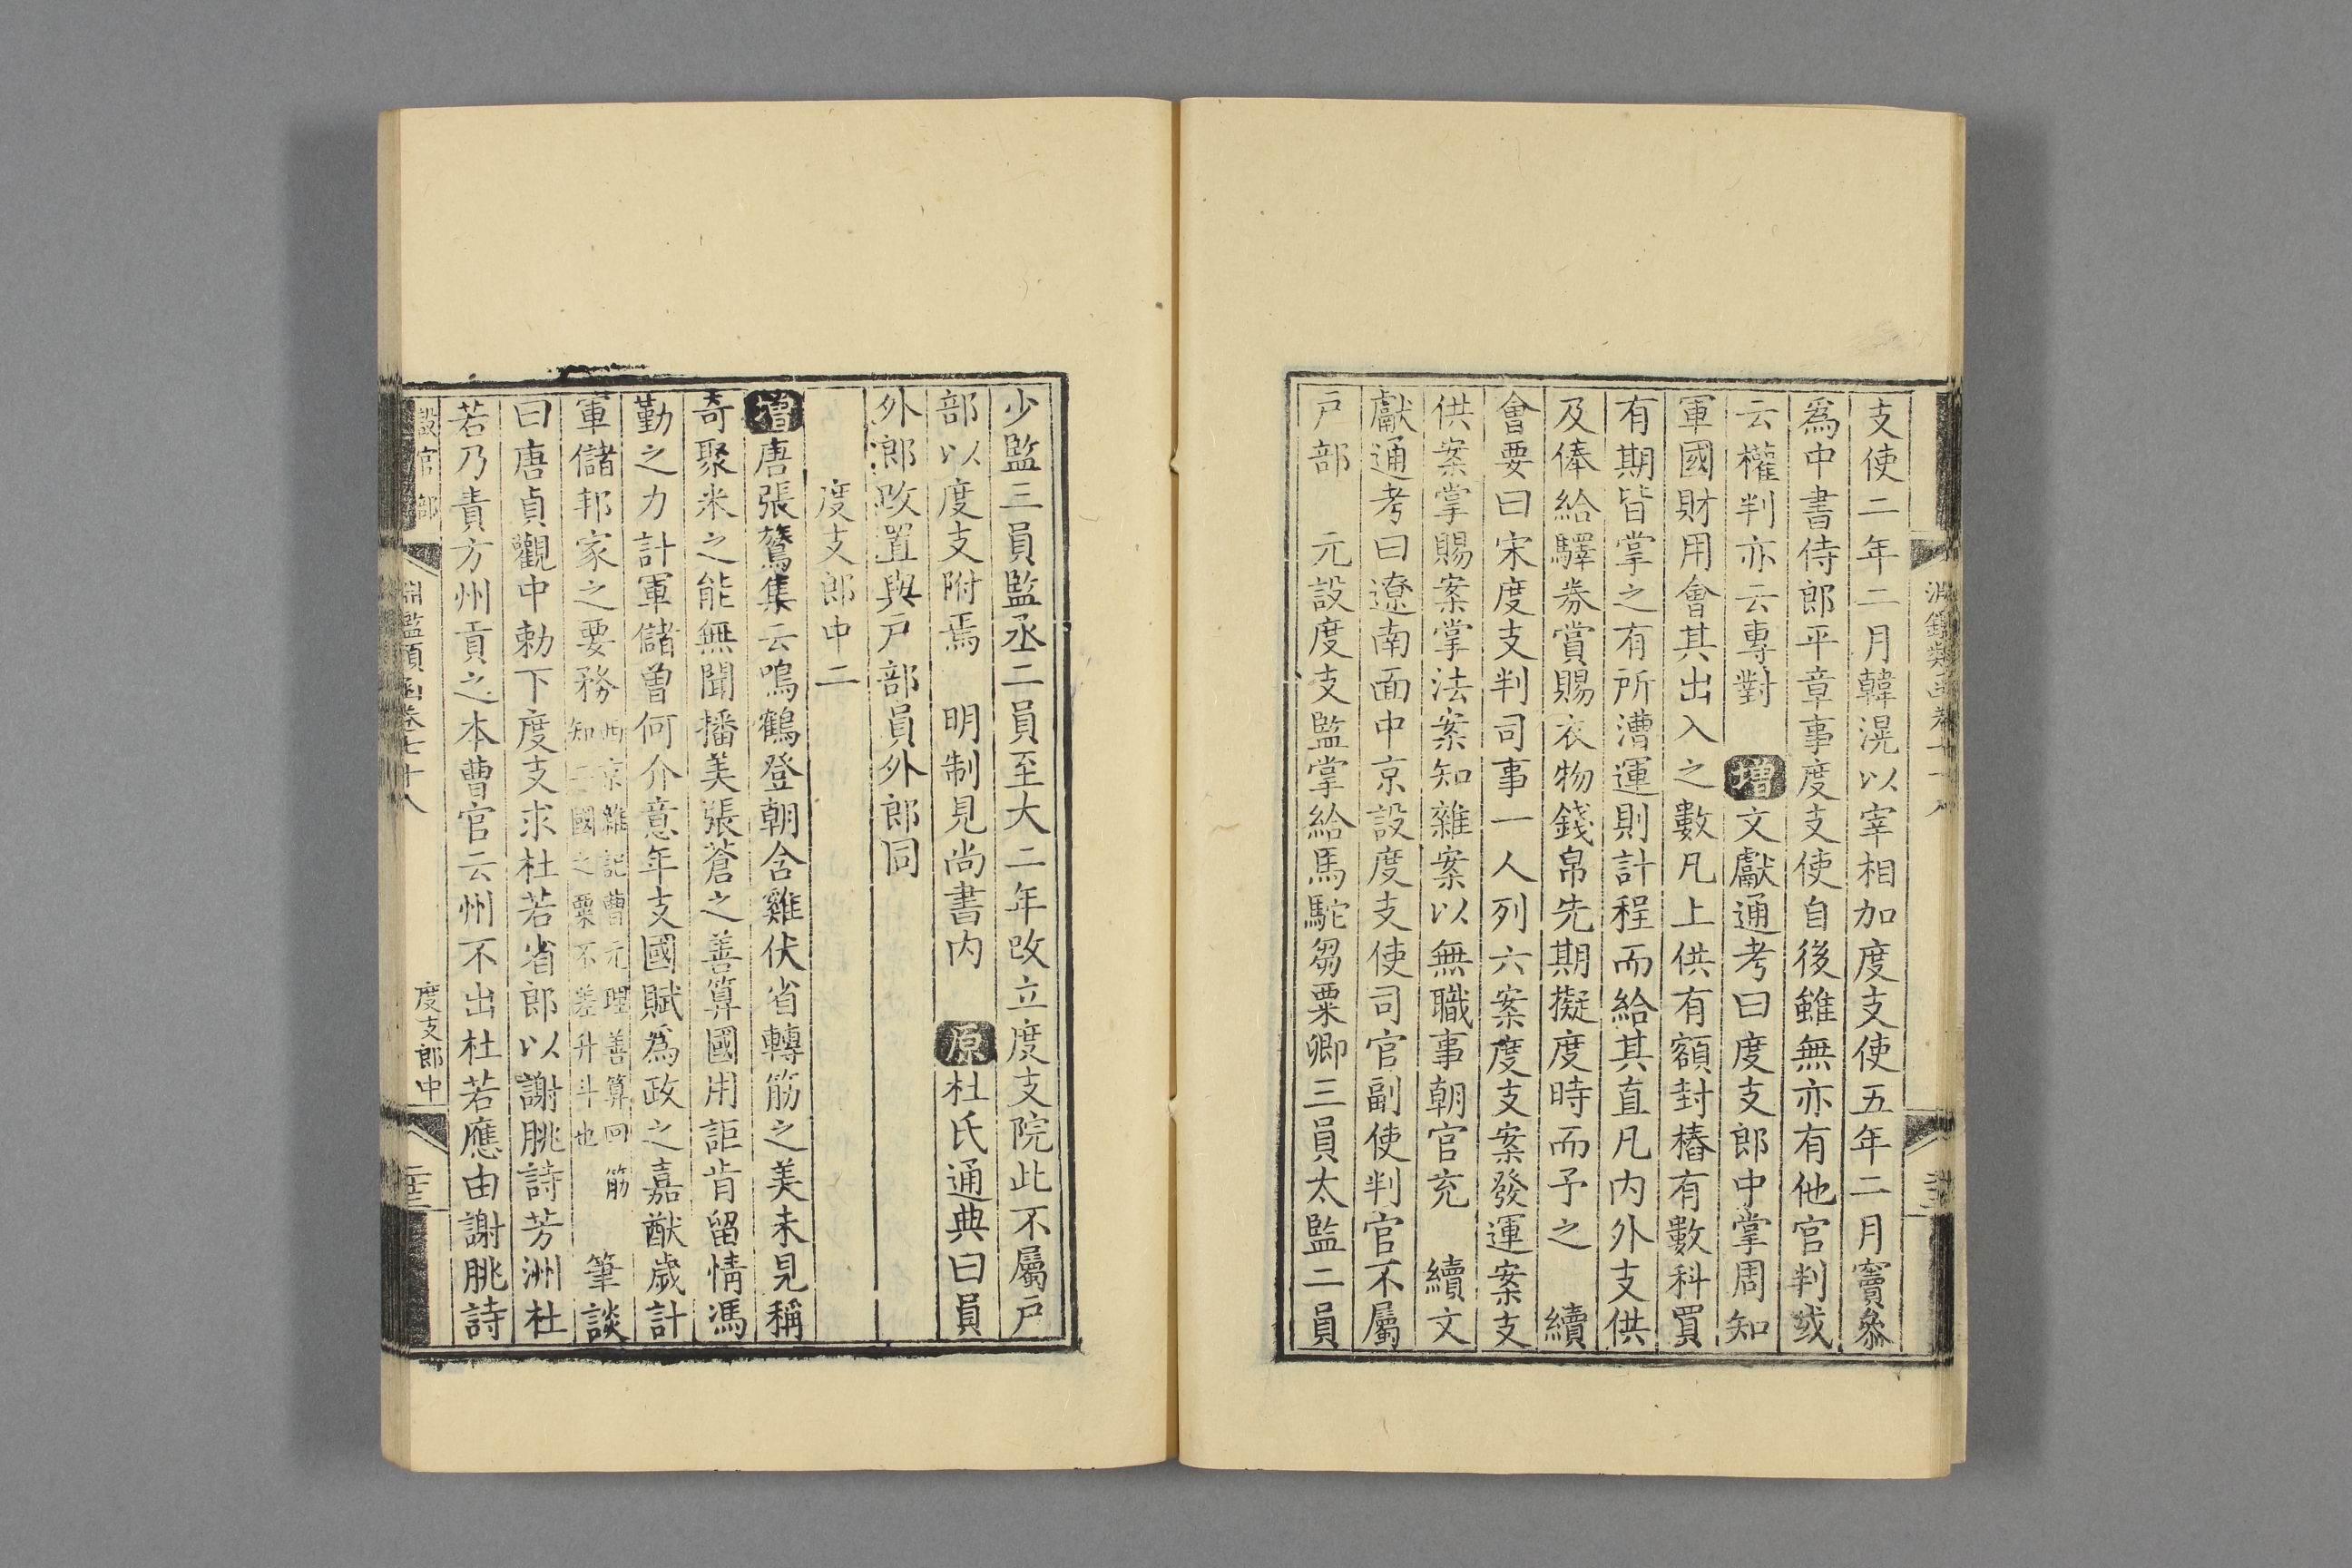 支使二年二月韓滉以宰相加度支使五年二月竇參
爲中書侍郎平章事度支使自後雖無亦有他官判或
云權判亦云專對 增 文獻通考曰度支郎中掌周知
軍國財用會其出入之數凡上供有額封樁有數科買
有期皆掌之有所漕運則計程而給其直凡内外支供
及俸給驛券賞賜衣物錢帛先期擬度時而予之 續
會要曰宋度支判司事一人列六案度支案發運案支
供案掌賜案掌法案知雜案以無職事朝官充 續文
獻通考曰遼南面中京設度支使司官副使判官不屬
戸部 元設度支監掌給馬駝芻粟卿三員太監二員
少監三員監丞二員至大二年改立度支院此不屬戸
部以度支附焉 明制見尚書内 原 杜氏通典曰員
外郎改置與戸部員外郎同
度支郎中二
增 唐張鷟集云鳴鶴登朝含雞伏省轉筋之美未見稱
奇聚米之能無聞播美張蒼之善算國用詎肯留情馮
勤之力計軍儲曾何介意年支國賦爲政之嘉猷歲計
軍儲邦家之要務 西京雜記曹元理善算回筋
知二國之粟不差升斗也 筆談
曰唐貞觀中勅下度支求杜若省郎以謝朓詩芳洲杜
若乃責方州貢之本曹官云州不出杜若應由謝朓詩
設官部
淵鑑類函卷七十八
度支郎中